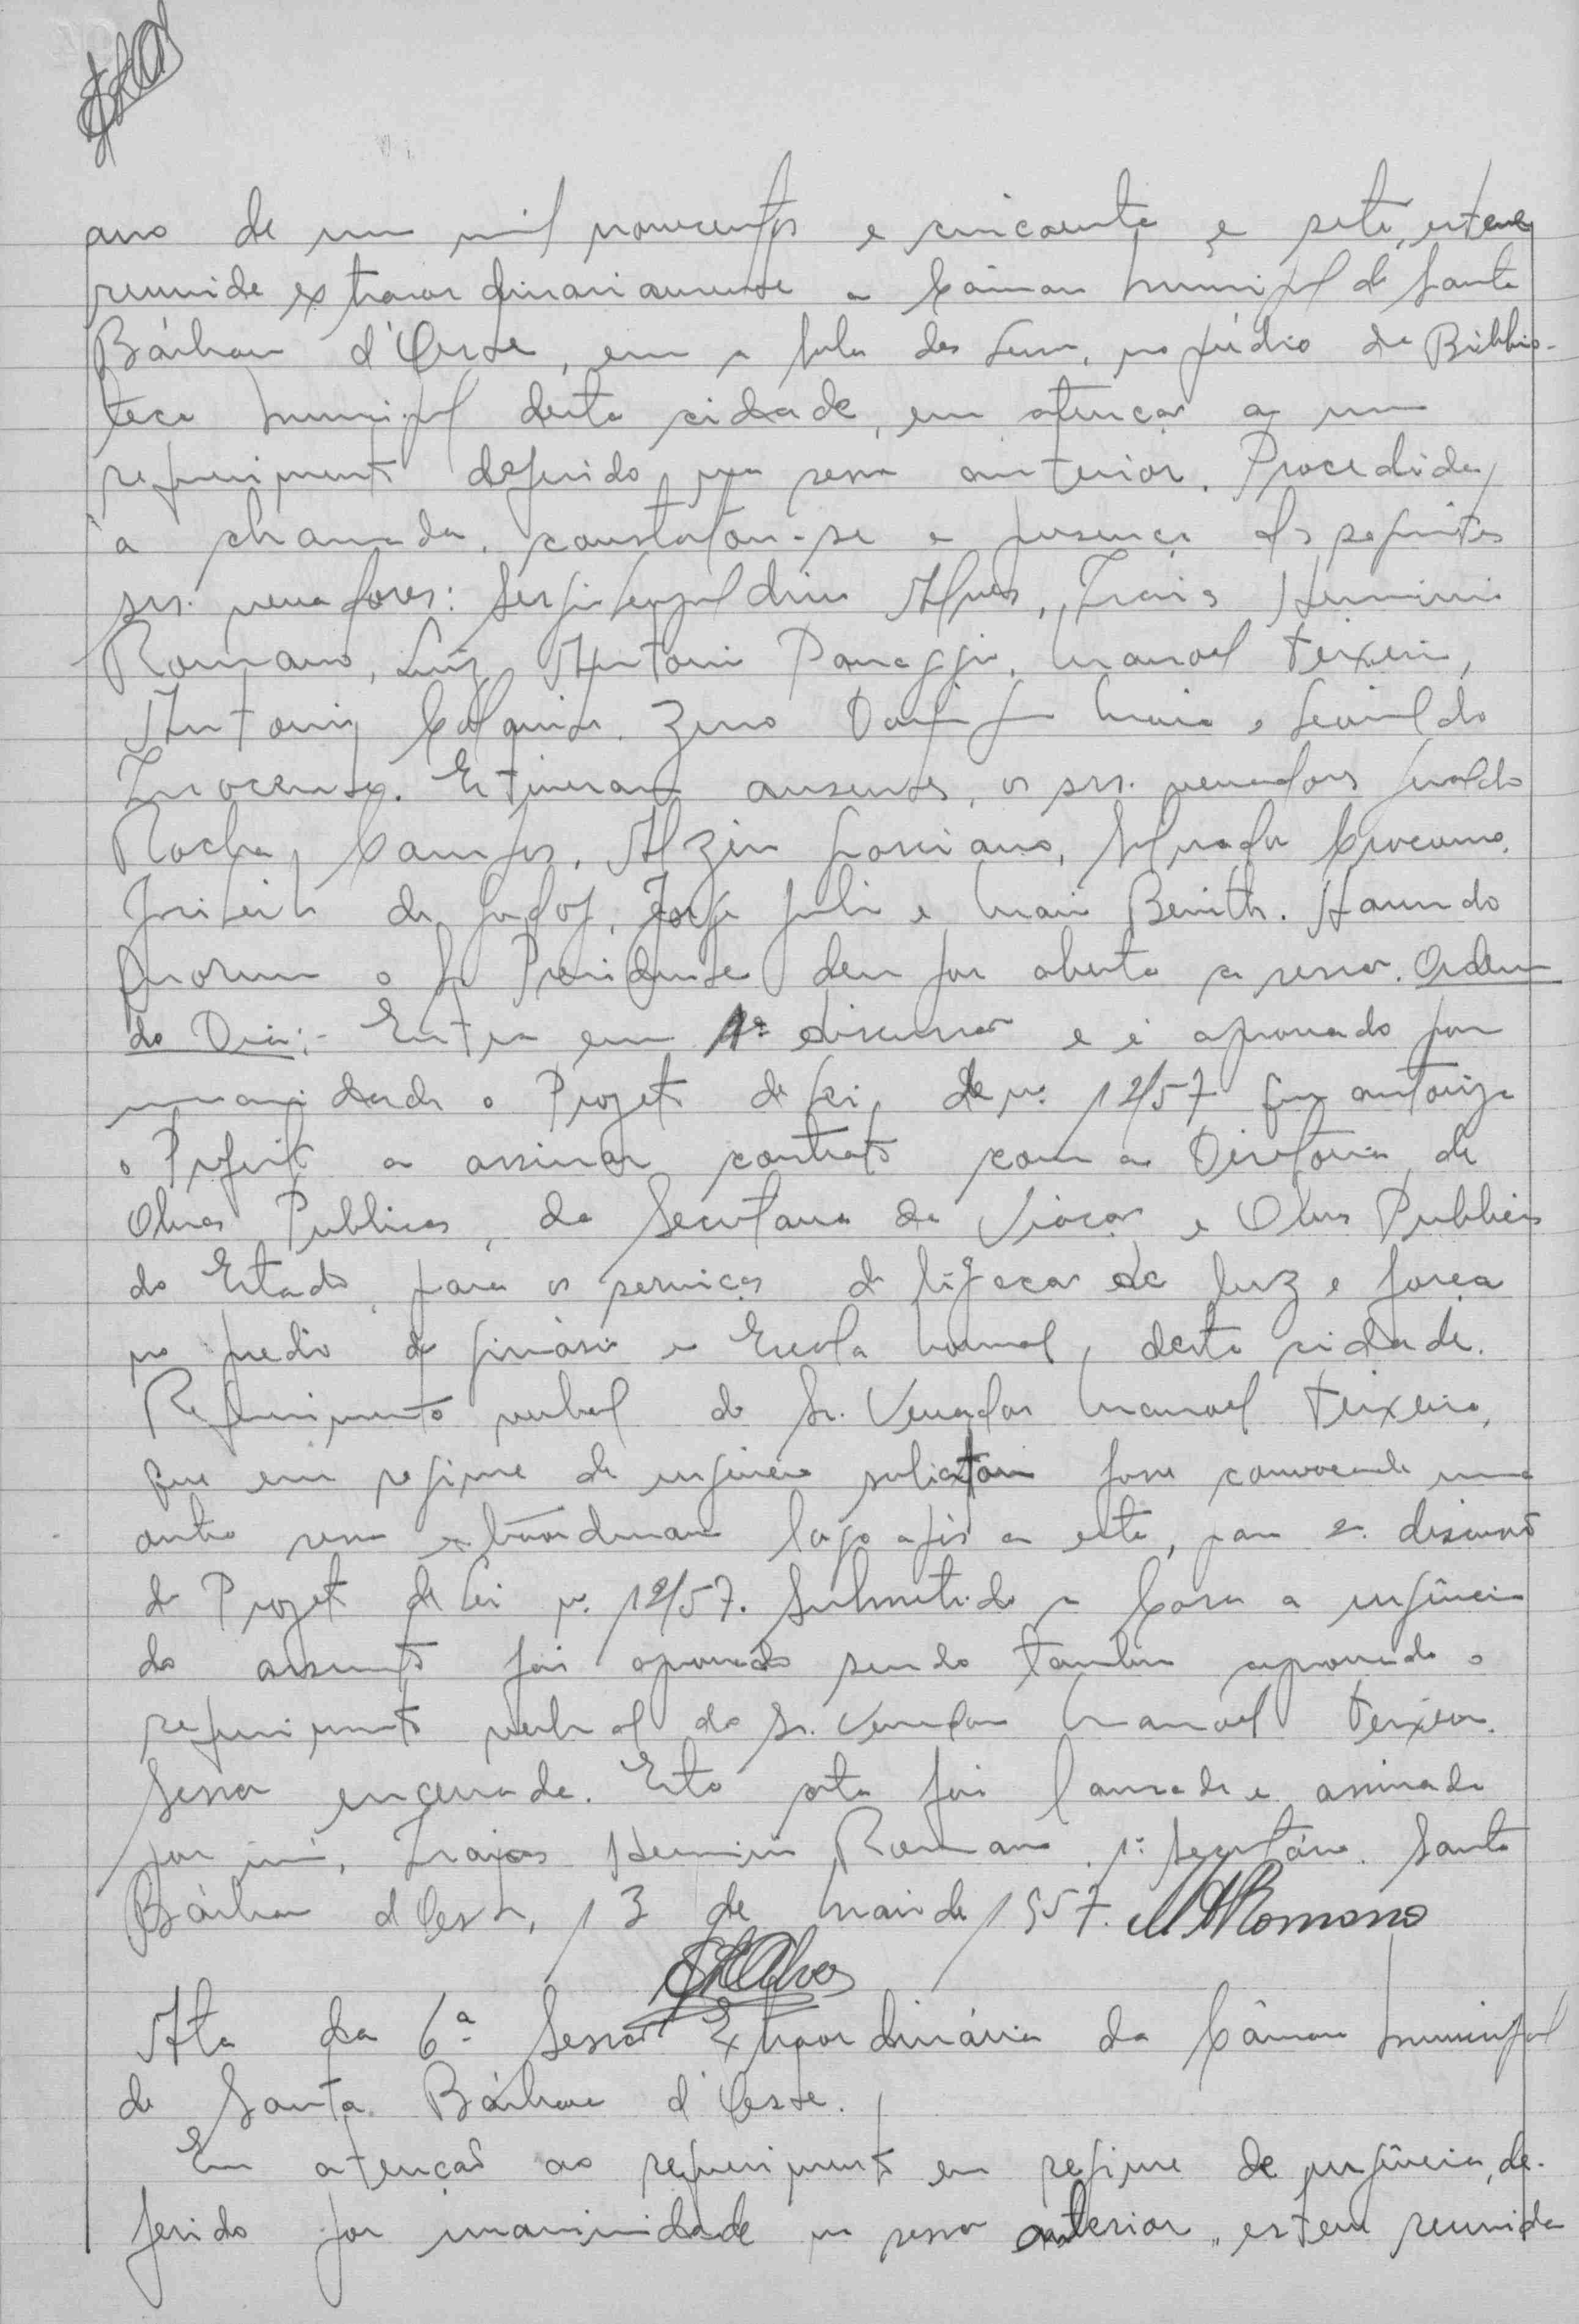 ano de um mil novecentos e cincoenta e sete, esteve
reunida extraordinariamente a Câmara Municipal de Santa
Bárbara d'Oeste, em a sala das Sess, no prédio da Bibblio-
teca Municipal desta cidade, em atenção a um
requerimento deferido na sessão anterior. Procedida
a chamada, constatou-se a presença dos seguintes
srs. vereadores: Sergio Leopoldino Alves, Isaias Herminio
Romano, Luiz Antonio Panaggio, Manoel Teixeira,
Antonio Zeno Maia e Leonildo
Inocente. Estiveram ausentes, os srs. vereadores Geraldo
Rocha Campos, Alzira Salvador
de Godoy, Jorge e Benith. Havendo
quorum o Sr Presidente deu por aberta a sessão. Ordem
do Dia:- Entra em 1ª discussão e é aprovado por
unanimidade o Projeto de Lei, de nº 12/57 que autoriza
o Prefeito a assinar contrato com a Diretoria de
Obras Publicas, da Secretaria de Viação e Obras Publicas
do Estado, para os serviços de ligação de luz e força
no predio do ginásio e Escola Normal, desta cidade.
Requerimento verbal do Sr. Vereador Manoel Teixeira,
que em regime de urgência solicitou fosse convocada uma
outra sessão extraordinaria logo após a esta, para 2ª discussão
do Projeto de Lei nº 12/57. Submetido a Casa a urgência
do assunto foi aprovado sendo também aprovado o
requerimento verbal do Sr. Vereador Manoel Teixeira.
Sessão encerrada. Esta ata foi lavrada e assinada
por mim, Isaias Herminio Romano 1º Secretário. Santa
Bárbara d'Oeste, 13 de Maio de 1957. Romano
Alves
Ata da 6ª Sessão Extraordinária da Câmara Municipal
de Santa Bárbara d'Oeste.
Em atenção ao requerimento em regime de urgência, de-
ferido por unanimidade na sessão anterior, esteve reunida